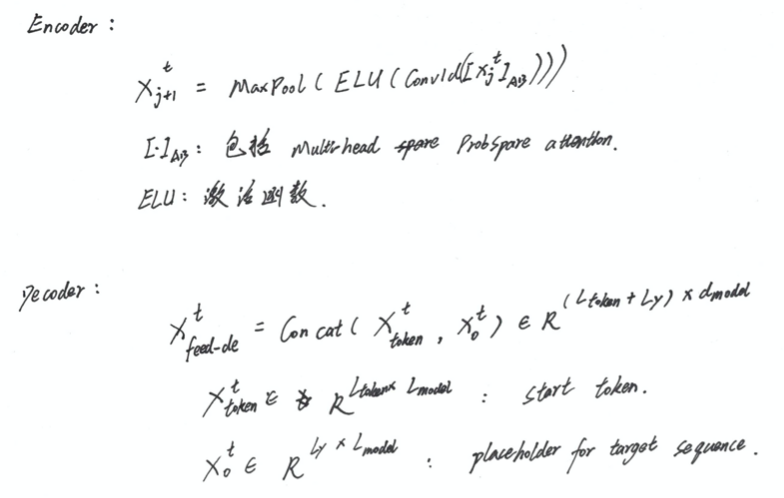 Encoder :
X_{j+1}^t = MaxPool ( ELU ( Conv1d([X_j^t]_{AB})))
[·]_{AB} : 包括 Multi-head ProbSpare attention.
ELU : 激活函数.
Decoder :
X_{feed-de}^t = Concat ( X_{token}^t , X_0^t ) ∈ R^{(L_{token} + L_y) × d_{model}}
X_{token}^t ∈ R^{L_{token} × L_{model}} : start token.
X_0^t ∈ R^{L_y × L_{model}} : placeholder for target sequence.